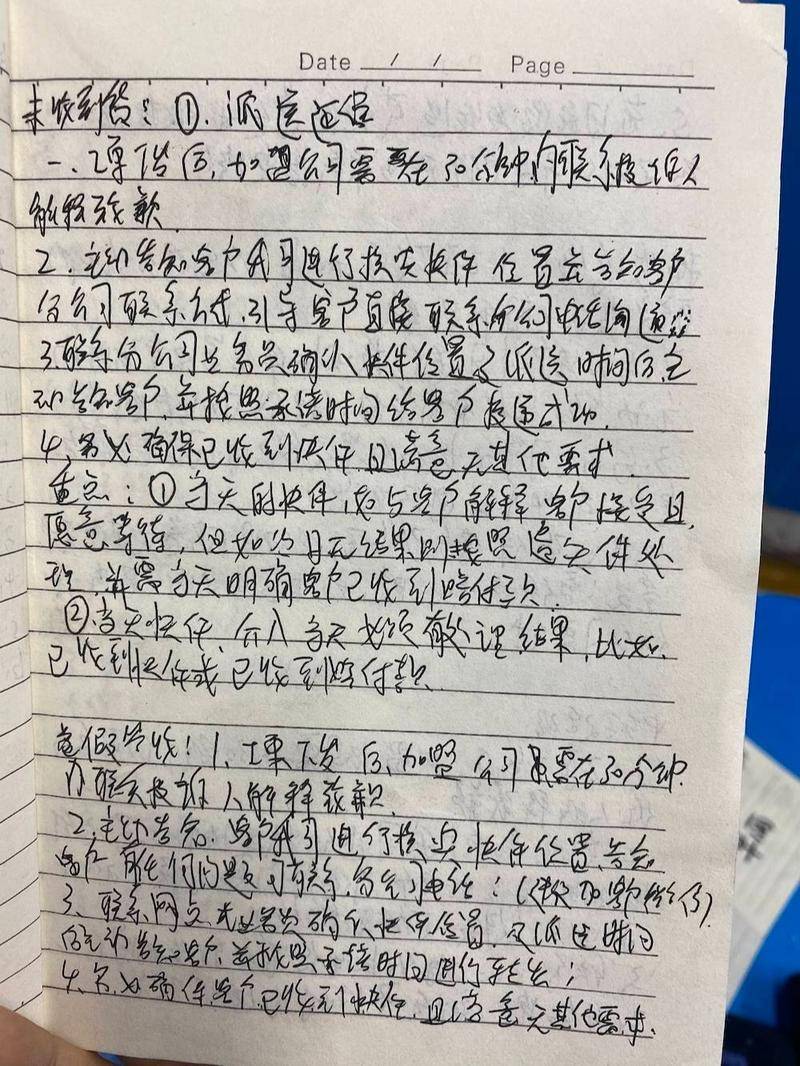 Date / / Page
未收到货：①.派送延误
一、工单下发后,加盟公司需要在30分钟内联系投诉人
解释致歉
2.主动告知客户我司进行核实快件位置并告知客户
分公司联系方式,引导客户直接联系分公司电话沟通
3.联系分公司业务员确认快件位置及派送时间后,主
动告知客户,并按照承诺时间给客户投递成功.
4、务必确保已收到快件且满意无其他需求.
重点：①当天的快件,如与客户解释客户接受且
愿意等待,但如次日无结果则按照遗失件处
理,并需当天明确客户已收到赔付款.
②.当天快件,介入当天必须有处理结果,比如
已收到快件或已收到赔付款.
虚假签收！1、工单下发后,加盟公司需要在30分钟
内联系投诉人解释致歉
2.主动告知客户我司进行核实快件位置,告知
客户有任何问题可联系分公司电话：
3、联系网点业务员确认快件位置及派送时间
后主动告知客户,并按照承诺时间进行
4.务必确保客户已收到快件,且满意无其他需求.